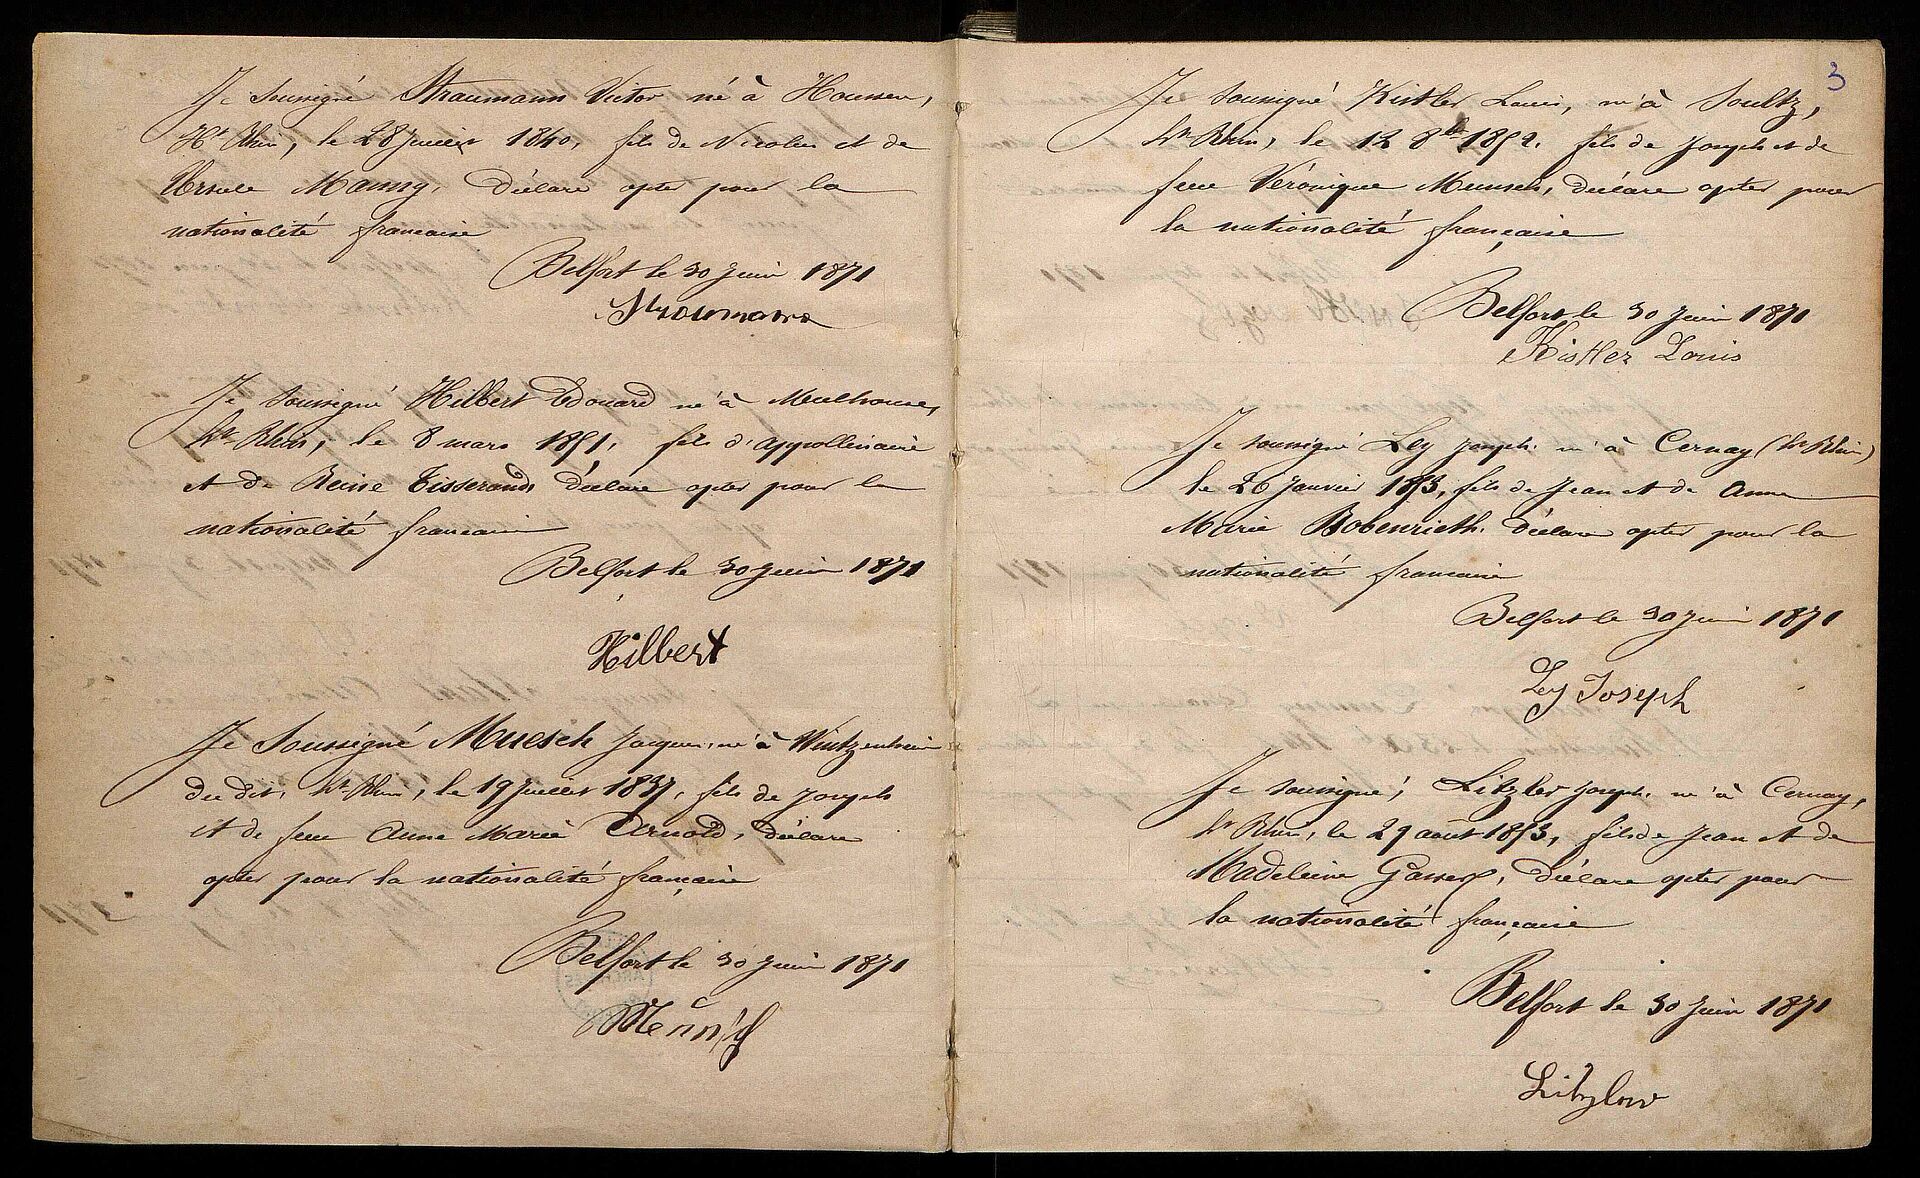 Je soussigné Straumann Victor né à Houssen,
Ht Rhin, le 28 Juillet 1840, fils de Nicolas et de
Ursule Maurry, déclare opter pour la
nationalité francaise
Belfort le 30 Juin 1871
Straumann
Je soussigné Hilbert Edouard né à Mulhouse,
ht Rhin, le 8 mars 1851, fils d'appollinaire
et de Reine Tisserand, déclare opter pour la
nationalité francaise
Belfort le 30 Juin 1871
Hilbert
Je Soussigné Muesch Jacques, né à Wintzenheim
du dit, ht Rhin, le 19 Juillet 1837, fils de Joseph
et de feue Anne Marie Arnold, déclare
opter pour la nationalité française
Belfort le 30 Juin 1871
3
Je soussigné Kistler Louis, né à Soultz,
ht Rhin, le 12 8bre 1852, fils de Joseph et de
feue Véronique Muesch, déclare opter pour
la nationalité française
Belfort le 30 Juin 1871
Kistler Louis
Je soussigné Ley Joseph né à Cernay (ht Rhin)
le 26 Janvier 1853, fils de Jean et de Anne
Marie Bobenrieth. Déclare opter pour la
nationalité francaise
Belfort le 30 Juin 1871
Ley Joseph
Je soussigné, Litzler Joseph né à Cernay,
ht Rhin, le 29 août 1853, fils de Jean et de
Madeleine Gasser, déclare opter pour
la nationalité française
Belfort le 30 Juin 1871
Litzler